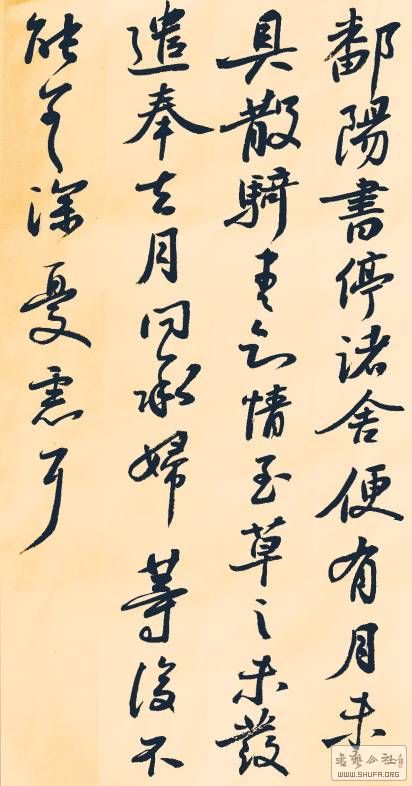 鄱陽書停諸舍便有月未
具散騎書知情至草之未發
遣奉去月問承婦等復不
能不深憂慮耳
书艺公社
WWW.SHUFA.ORG